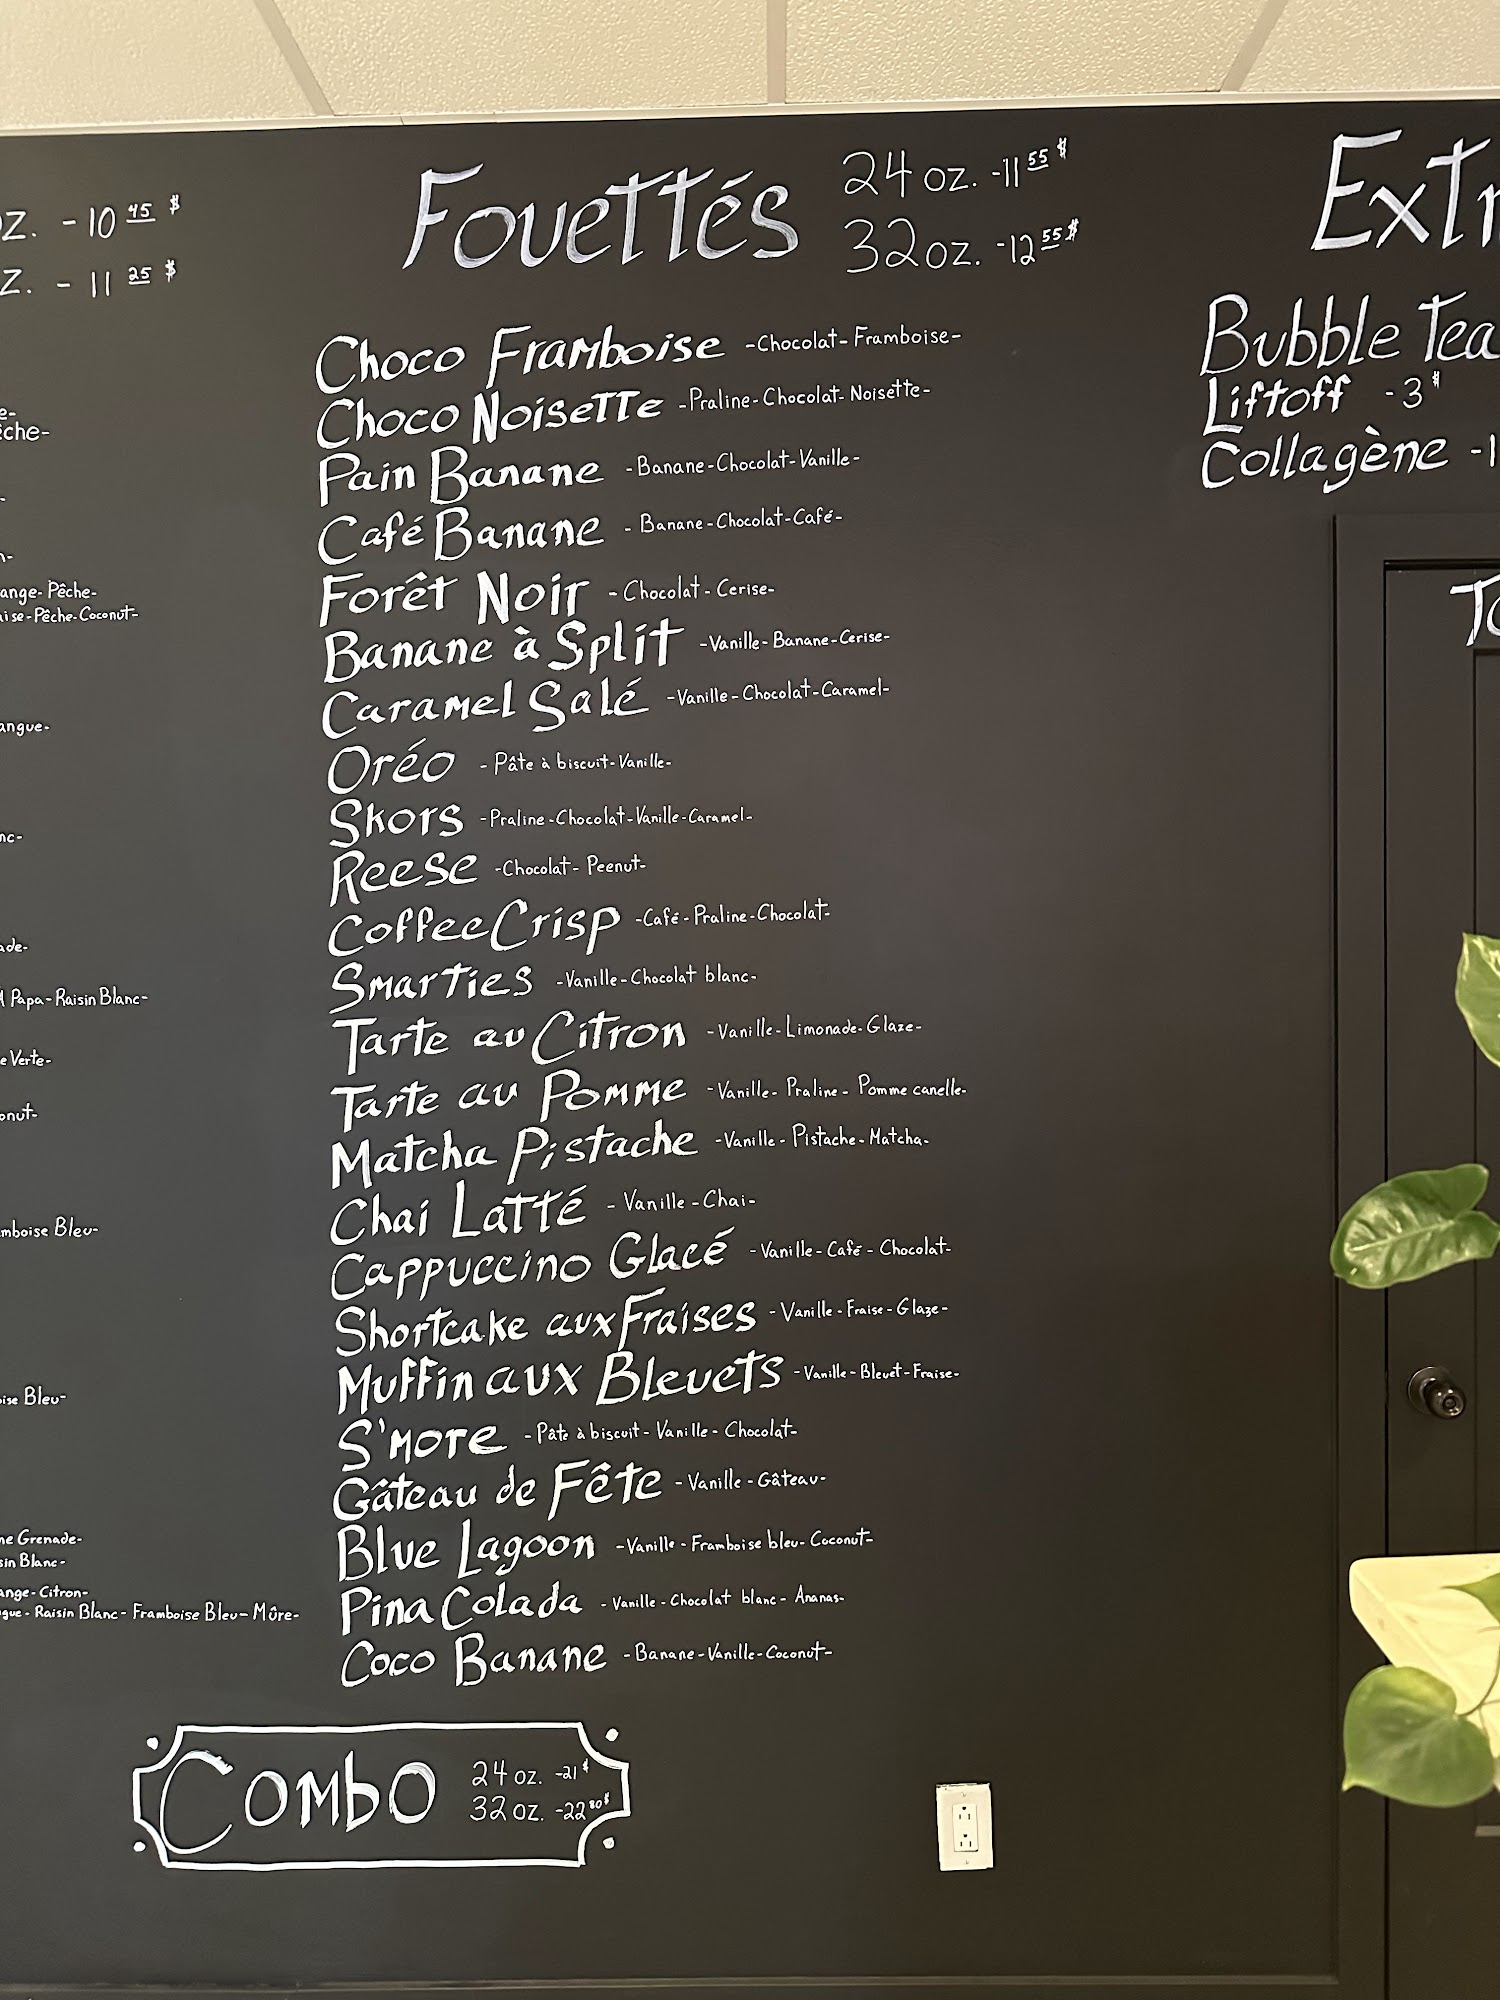 OZ. - 10 45 $
Z. - 11 25 $
e-
êche-
n-
ange- Pêche-
aise-Pêche-Coconut-
angue-
nc-
ade-
Papa-Raisin Blanc-
e Verte-
onut-
mboise Bleu-
ise Bleu-
ne Grenade-
sin Blanc-
ange-Citron-
gue-Raisin Blanc-Framboise Bleu-Mûre-
Fouettés
24 oz. -11 55 $
32 oz. -12 55 $
Choco Framboise -Chocolat-Framboise-
Choco Noisette -Praline-Chocolat-Noisette-
Pain Banane -Banane-Chocolat-Vanille-
Café Banane -Banane-Chocolat-Café-
Forêt Noir -Chocolat-Cerise-
Banane à Split -Vanille-Banane-Cerise-
Caramel Salé -Vanille-Chocolat-Caramel-
Oréo -Pâte à biscuit-Vanille-
Skors -Praline-Chocolat-Vanille-Caramel-
Reese -Chocolat-Peenut-
Coffee Crisp -Café-Praline-Chocolat-
Smarties -Vanille-Chocolat blanc-
Tarte au Citron -Vanille-Limonade-Glaze-
Tarte au Pomme -Vanille-Praline-Pomme canelle-
Matcha Pistache -Vanille-Pistache-Matcha-
Chai Latté -Vanille-Chai-
Cappuccino Glacé -Vanille-Café-Chocolat-
Shortcake aux Fraises -Vanille-Fraise-Glaze-
Muffin aux Bleuets -Vanille-Bleuet-Fraise-
S'more -Pâte à biscuit-Vanille-Chocolat-
Gâteau de Fête -Vanille-Gâteau-
Blue Lagoon -Vanille-Framboise bleu-Coconut-
Pina Colada -Vanille-Chocolat blanc-Ananas-
Coco Banane -Banane-Vanille-Coconut-
Combo
24 oz. -21 $
32 oz. -22 80 $
Extr
Bubble Tea
Liftoff -3 $
Collagène -1